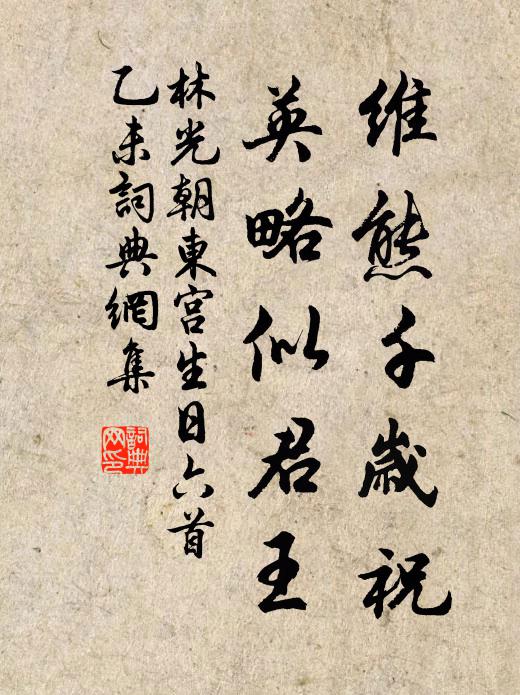 維熊千歲祝
英略似君王
林光朝東宮生日六首
乙未詞典網集
詞典网印